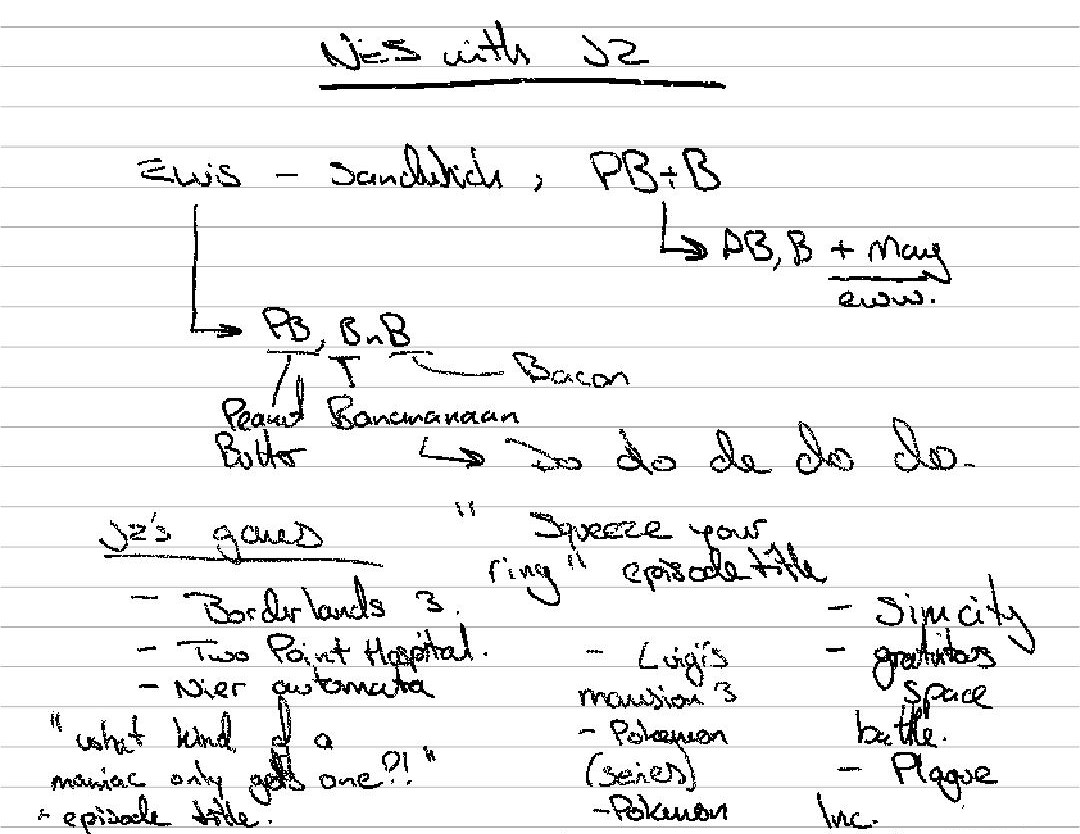 NES with J2
Elvis - Sandwich, PB+B
PB, B + May
eww.
PB, BnB
Bacon
Peanut Bananaaan
Butter
Do do de do do.
J2's games
"Squeeze your
ring" episode title
- Borderlands 3.
- Two Point Hospital.
- Nier automata
"what kind of a
maniac only gets one?!"
- episode title.
- Luigi's
mansion 3
- Pokemon
(series)
- Pokemon
- Simcity
- gratuitos
space
battle.
- Plague
Inc.